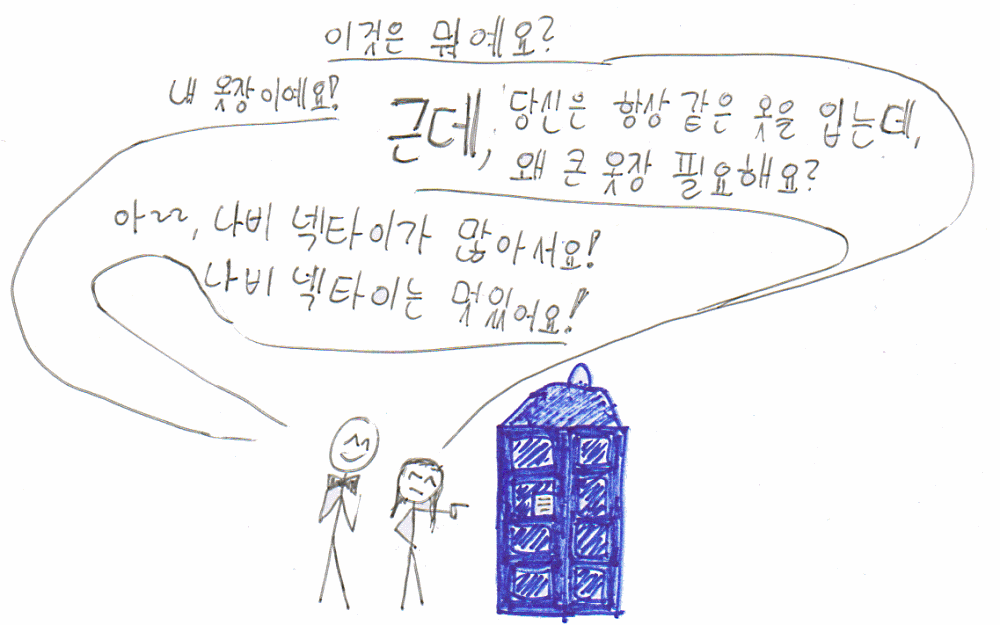 이것은 뭐예요?
내 옷장이예요!
근데, 당신은 항상 같은 옷을 입는데,
왜 큰 옷장 필요해요?
아~~, 나비 넥타이가 많아서요!
나비 넥타이는 멋있어요!